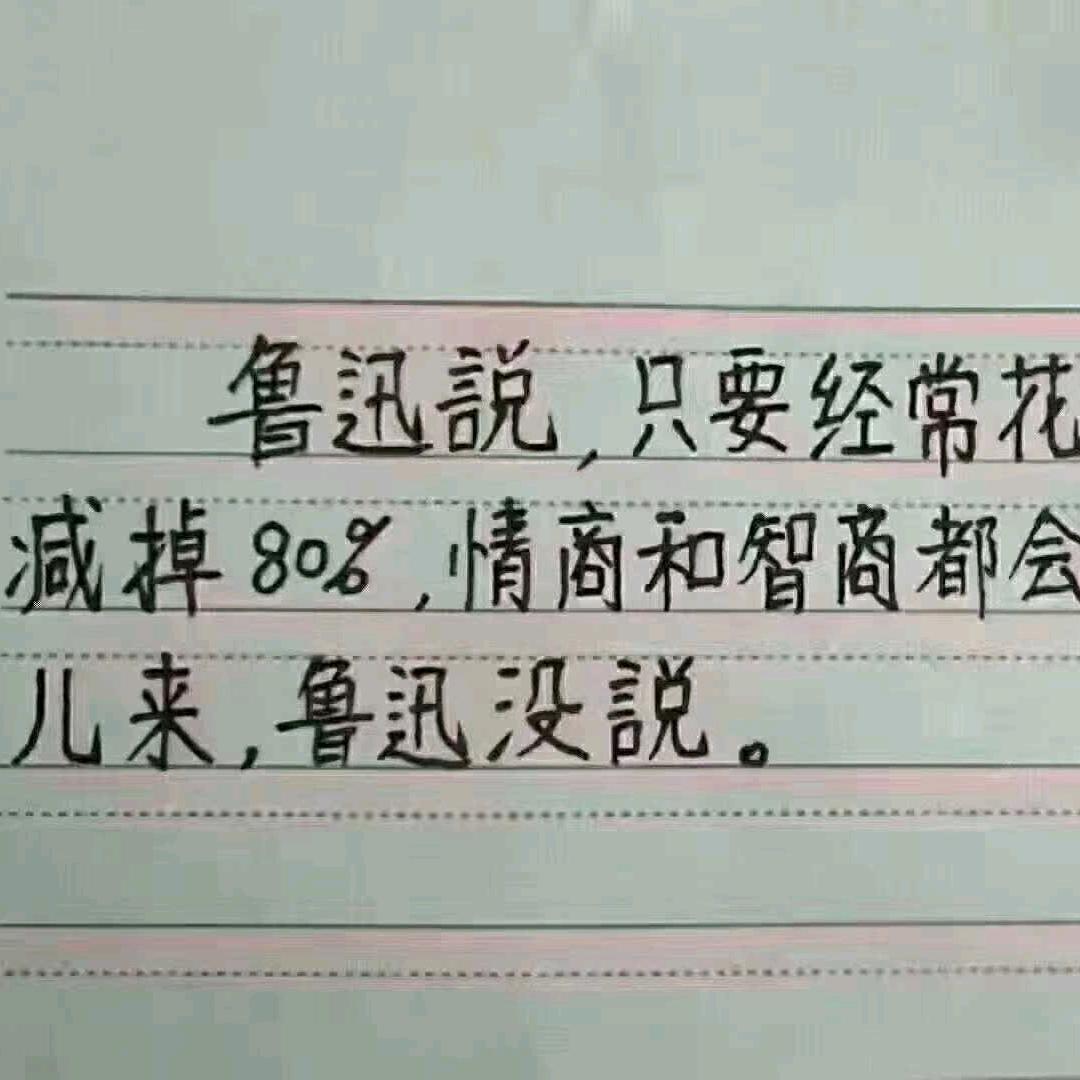 鲁迅説,只要经常花
减掉80%,情商和智商都会
儿来,鲁迅没説。